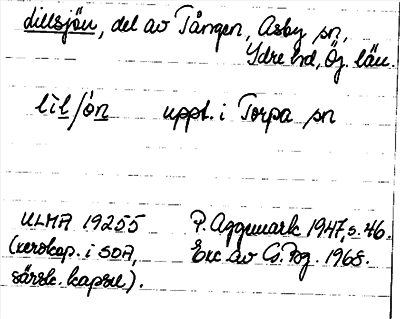 dillsjön, del av Tången, Asby sn,
Ydre hd, Ög. län.
līl/ön uppt. i Torpa sn
ULMA 19255 P. Aggmark 1947, s. 46.
(xeroxkop. i SOA, Exc av G. Pog. 1968.
särsk. kapsel).